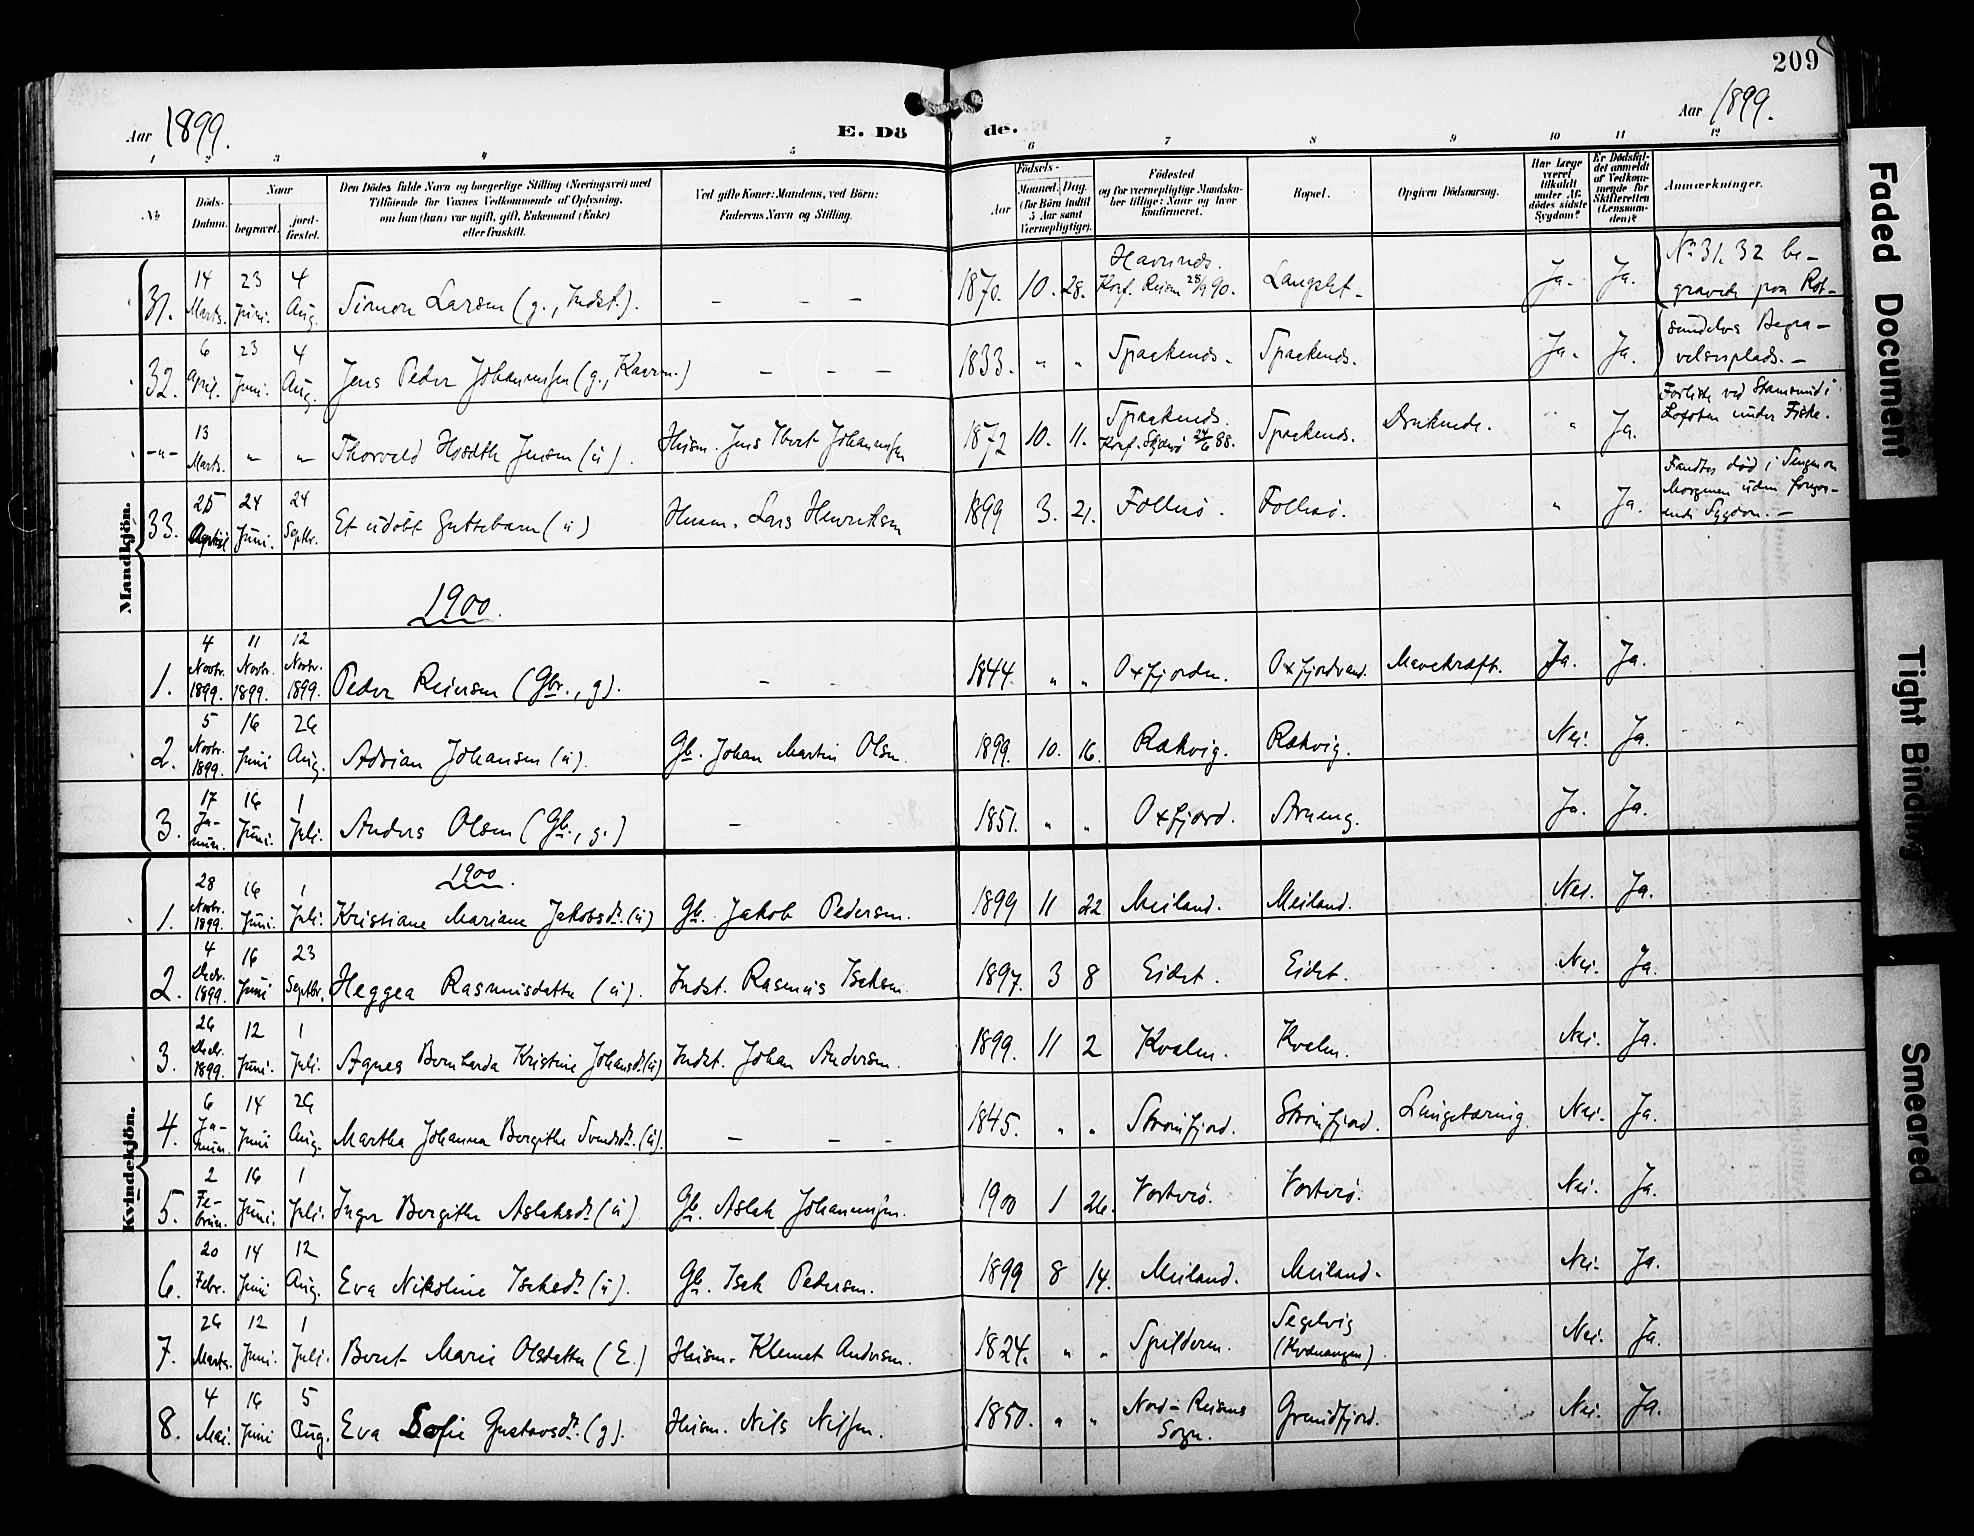 209
Aar 1899.
E. Dö
de.
Aar 1899.
1 2 3 4 5 6 7 8 9 10 11 12
No
Döds-
Datum.
Naar
begravet.
jord-
fæstet.
Den Dödes fulde Navn og borgerlige Stilling (Næringsvei) med
Tilföiende for Voxnes Vedkommende af Oplysning,
om han (hun) var ugift, gift, Enkemand (Enke)
eller fraskilt.
Ved gifte Koner: Mandens, ved Börn:
Faderens Navn og Stilling.
Födsels-
Aar
Maaned. Dag.
(for Börn indtil
5 Aar samt
Værnepligtige).
Födested
og for værnepligtige Mandska-
ber tillige: Naar og hvor
konfirmeret.
Bopæl.
Opgiven Dödsaarsag.
Har Læge
været
tilkaldt
under Af-
dödes sidste
Sygdom?
Er Dödsfal-
det anmeldt
af Vedkom-
mende for
Skifteretten
(Lensman-
den)?
Anmærkninger.
Mandkjön.
31. 14 Marts. 23 Juni. 4 Aug. Simon Larsen (g., Indst.). – – – 1870. 10. 28. Havnnes. Konf. Reisen 28/9 90. Langslet – Ja. Ja. No 31. 32 be-
gravede paa Rot-
32. 6 April. 23 Juni. 4 Aug. Jens Peder Johannessen (g., Kaarm.) – – – 1833. " " Spaakenes. Spaakenes. Ja. Ja. sundelvs Begra-
velsesplads. –
-"- 13 Marts. " " Thorvald Hosdth Jensen (u). Huusm. Jens Ibert Johannessen 1872 10. 11. Spaakenes. Konf. Skjervö 24/6 88. Spaakenes. Druknede. " Ja. Forliste ved Stamsund i
Lofoten under Fiske.
33. 25 April 24 Juni. 24 Septbr. Et udöbt Guttebarn (u) Huusm. Lars Henriksen 1899 3. 21. Follesö. Follesö. " Ja. Fandtes död i Sengen om
Morgenen uden forgaa-
ende Sygdom. –
1900.
1. 4 Novbr. 1899. 11 Novbr. 1899. 12 Novbr. 1899. Peder Reiersen (Gbr., g). – – 1844. " " Oxfjorden. Oxfjordvand. Mavekræft. Ja. Ja.
2. 5 Novbr. 1899. 16 Juni 26 Aug. Adrian Johansen (u). Gb. Johan Martin Olsen. 1899. 10. 16. Rakvig. Rakvig. Nei. Ja.
3. 17 Januar. 16 Juni. 1 Juli. Anders Olsen (Gb., g.) – 1851. " " Oxfjord. Arneng. Ja. Ja.
Kvindekjön.
1900.
1. 28 Novbr. 1899. 16 Juni. 1 Juli. Kristiane Mariane Jakobsdr. (u) Gb. Jakob Pedersen. 1899 11 22 Meiland. Meiland. Nei. Ja.
2. 4 Decbr. 1899. 16 Juni 23 Septbr. Heggea Rasmusdatter (u). Indst. Rasmus Isaksen. 1897. 3 8 Eidet. Eidet. Nei. Ja.
3. 26 Decbr. 1899. 12 Juni. 1 Juli. Agnes Bernharda Kristine Johansdr. (u) Indst. Johan Andersen. 1899. 11 2 Kvalen. Kvalen. Nei. Ja.
4. 6 Januar. 14 Juni 26 Aug. Martha Johanna Bergithe Svendsdr. (u). – – – 1845. " " Strömfjord. Strömfjord. Lungetæring. Nei. Ja.
5. 2 Februar. 16 Juni. 1 Juli. Inger Bergithe Aslaksdr. (u). Gb. Aslak Johannesen. 1900 1 26. Vorterö. Vorterö. Nei. Ja.
6. 20 Febr. 14 Juni 12 Aug. Eva Nikoline Isaksdr. (u). Gb. Isak Pedersen. 1899 8 14. Meiland. Meiland. Nei. Ja.
7. 26 Marts. 12 Juni. 1 Juli. Beret Marie Olsdatter (E.) Huusm. Klemet Andersen. 1824. " " Spilderen. Segelvig (Kvænangen). Nei. Ja.
8. 4 Mai. 16 Juni 5 Aug. Eva Sofie Gustavsdr. (g). Huusm. Nils Nilsen. 1850. " " Nord-Reisens Sogn. Grundfjord. Nei. Ja.
Faded Document
Tight Binding
Smeared